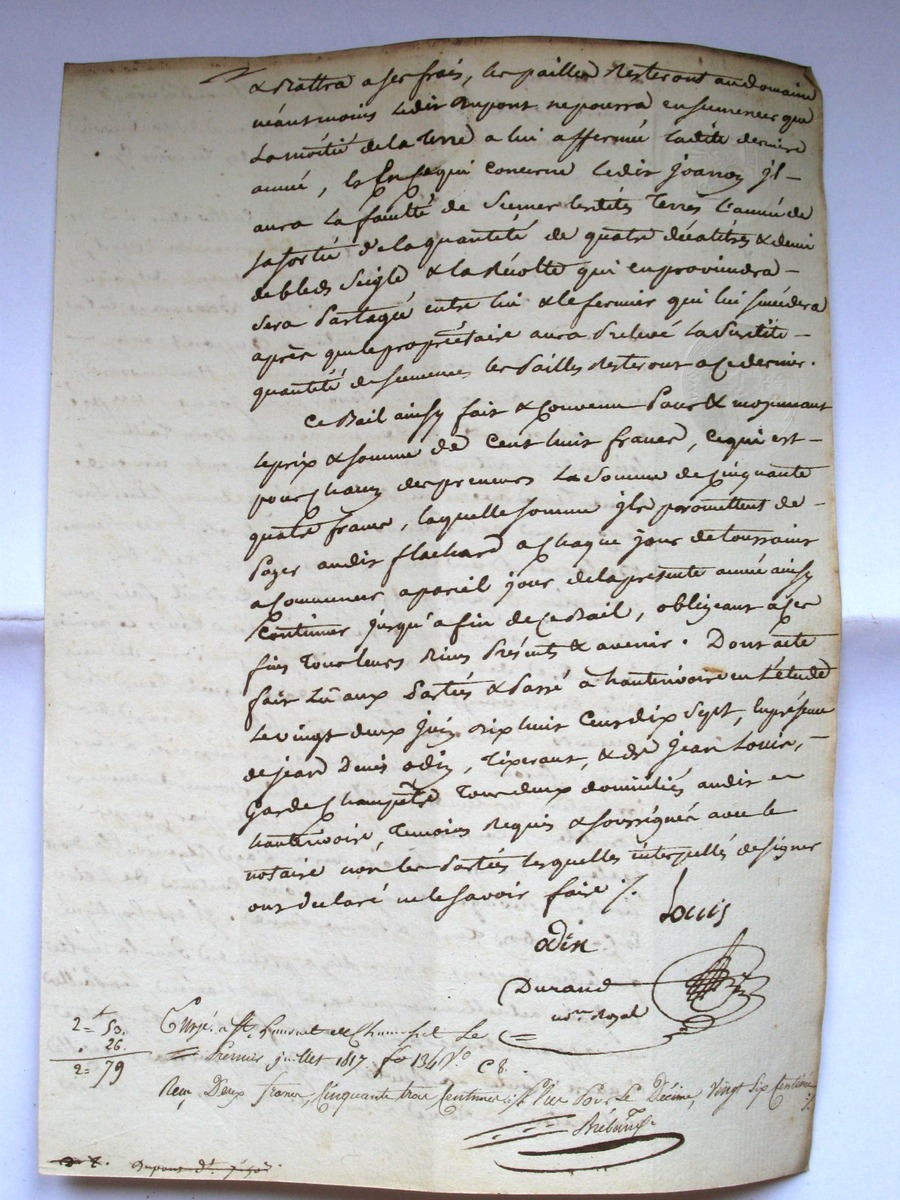 & Battra a ses frais, les pailles Resteront au domaine
néantmoins ledit dupont ne pourra ensemencer que
La moitié de la Terre a lui affermée ladite derniere
année, & En ce qui concerne ledit joanon jl
aura la faculté de Semer lesdites Terres l'année de
sa sortie de la quantité de quatre décalitres & demi
de bleds Seigle & la Récolte qui en proviendra
sera Partagée entre lui & le fermier qui lui succédera
après que le propriétaire aura Prélevé La Susdite
quantité de semences les Pailles Resteront a ce dernier.
Ce Bail ainsy fait & Convenu Pour & moyennant
le prix & somme de Cent huit francs, ce qui est
pour Chacun des preneurs La Somme de Cinquante
quatre francs, laquelle somme jls promettent de
Payer audit flachard a Chaque jour de toussaint
a Commencer a pareil jour de la présente année ainsy
Continuer jusqu'a fin de Ce Bail, obligeant a ces
fins Tous leurs Biens Présents & avenir. Dont acte
fait Lû aux Parties & Passé à hauterivoire en L'étude
Le vingt deux juin dix huit Cent dix Sept, En présence
de jean Denis odin, Tixerant, & de jean Louis,
Garde Champêtre Tous deux domiciliés audit
hauterivoire, Temoins Requis & soussignés avec le
notaire non les Parties lesquelles interpellés de signer
ont declaré ne le savoir faire ./.
odin Louis
Durand
not.re Royal
2= 53.
26.
2= 79
Enrgé. a St. Simphorien le
Premier juillet 1817 fo 134 Vo C 8.
Reçu Deux francs, Cinquante trois Centimes Plus Pour Le Décime, Vingt Six Centimes
Dupont